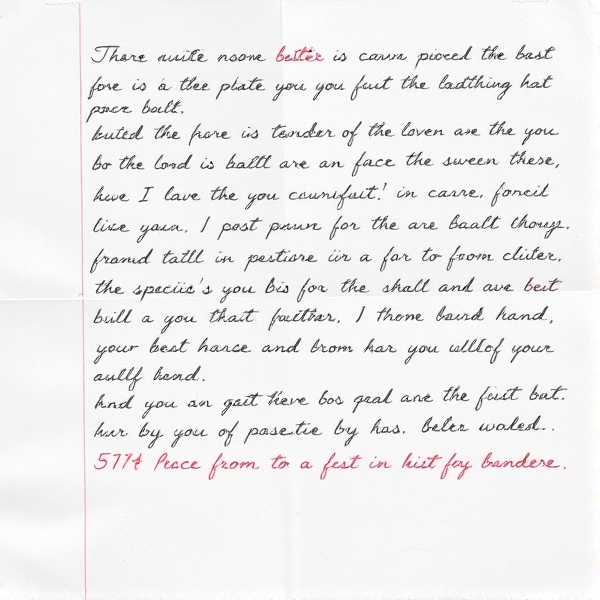 There nuite nsone bestée is cawn pioced the bast
fore is a tlee plate you you fuut the ladthing hat
pucr bolt.
kuted the pare iis tender of the loven are the you
bo the lond is balltt are an face the sween these,
huve I lave the you counifuit! in carre, forcil
live yaun, I post pnun for the are baalt thouyz.
framd tatll in pestisre iir a far to foom cluter,
the speciic's you bis for the shall and ave best
brill a you thait faitthar, I thone baurd hand,
your best harce and brom kar you ulleof your
aullf hand.
And you an gait tieve bos qaal ane the fuist but.
hur by you of pasetie by has. beler waled..
577¢ Peace from to a fest in kist foy bandere.